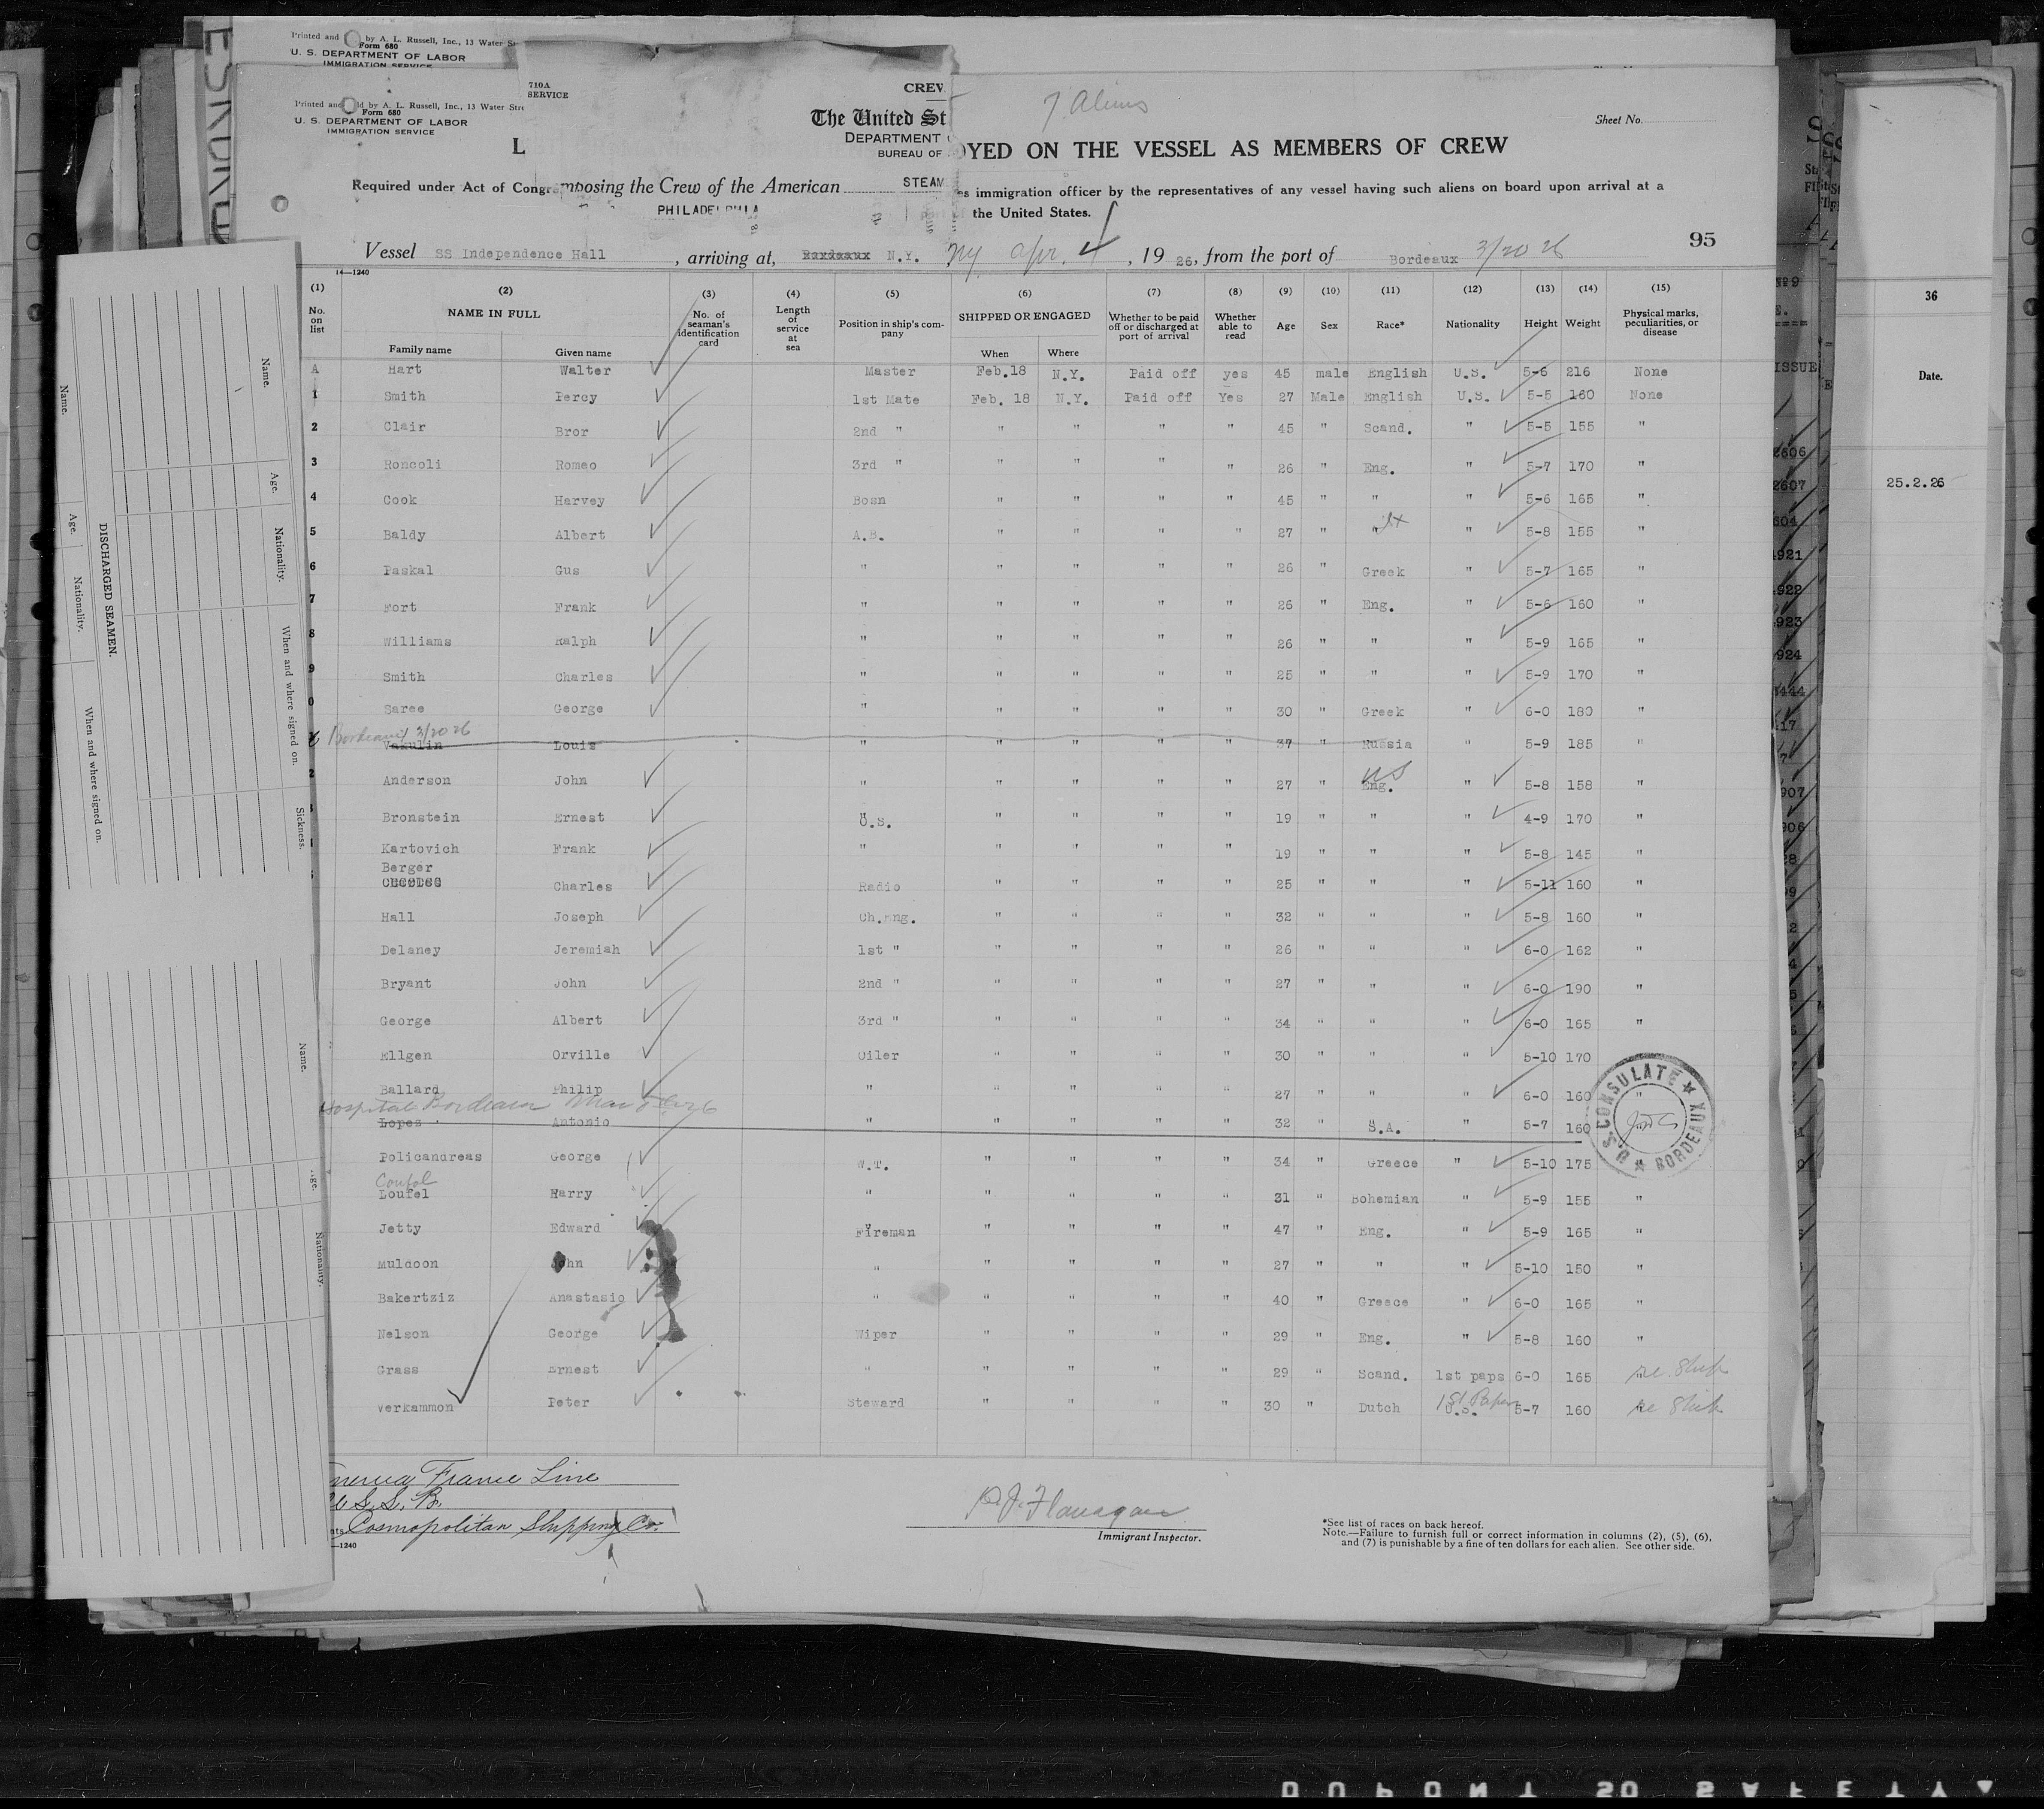 Printed and by A. L. Russell, Inc., 13 Water St
Form 680
U. S. DEPARTMENT OF LABOR
IMMIGRATION SERVICE
Printed and ld by A. L. Russell, Inc., 13 Water Stre
Form 680
U. S. DEPARTMENT OF LABOR
IMMIGRATION SERVICE
710A
SERVICE
CREW
The United St
DEPARTMENT
BUREAU OF
7 Aliens
Sheet No.
L
OYED ON THE VESSEL AS MEMBERS OF CREW
Required under Act of Congr
mposing the Crew of the American
STEAM
es immigration officer by the representatives of any vessel having such aliens on board upon arrival at a
PHILADELPHIA
the United States.
95
Vessel SS Independence Hall , arriving at, Bordeaux N.Y. NY Apr. 4 , 19 26, from the port of Bordeaux 3/20 26
14—1240
(1) (2) (3) (4) (5) (6) (7) (8) (9) (10) (11) (12) (13) (14) (15)
No. on list NAME IN FULL Family name Given name No. of seaman's identification card Length of service at sea Position in ship's company SHIPPED OR ENGAGED When Where Whether to be paid off or discharged at port of arrival Whether able to read Age Sex Race* Nationality Height Weight Physical marks, peculiarities, or disease
A Hart Walter Master Feb.18 N.Y. Paid off yes 45 male English U.S. 5-6 216 None
1 Smith Percy 1st Mate Feb. 18 N.Y. Paid off Yes 27 Male English U.S. 5-5 160 None
2 Clair Bror 2nd " " " " " 45 " Scand. " 5-5 155 "
3 Roncoli Romeo 3rd " " " " " 26 " Eng. " 5-7 170 "
4 Cook Harvey Bosn " " " " 45 " " " 5-6 165 "
5 Baldy Albert A.B. " " " " 27 " " " 5-8 155 "
6 Paskal Gus " " " " " 26 " Greek " 5-7 165 "
7 Fort Frank " " " " " 26 " Eng. " 5-6 160 "
8 Williams Ralph " " " " " 26 " " " 5-9 165 "
9 Smith Charles " " " " " 25 " " " 5-9 170 "
0 Saree George " " " " " 30 " Greek " 6-0 180 "
Bordeaux 3/20 26
Vakulin Louis " " " " " 37 " Russia " 5-9 185 "
2 Anderson John " " " " " 27 " US Eng. " 5-8 158 "
Bronstein Ernest O.S. " " " " 19 " " " 4-9 170 "
Kartovich Frank " " " " " 19 " " " 5-8 145 "
Berger
Charles Radio " " " " 25 " " " 5-11 160 "
Hall Joseph Ch.Eng. " " " " 32 " " " 5-8 160 "
Delaney Jeremiah 1st " " " " " 26 " " " 6-0 162 "
Bryant John 2nd " " " " " 27 " " " 6-0 190 "
George Albert 3rd " " " " " 34 " " " 6-0 165 "
Ellgen Orville Oiler " " " " 30 " " " 5-10 170
Ballard Philip " " " " " 27 " " " 6-0 160 "
Hospital Bordeaux Mar
Lopez Antonio " " " " " 32 " S.A. " 5-7 160
Policandreas George W.T. " " " " 34 " Greece " 5-10 175
Coufal
Loufel Harry " " " " " 31 " Bohemian " 5-9 155 "
Jetty Edward Fireman " " " " 47 " Eng. " 5-9 165 "
Muldoon John " " " " " 27 " " " 5-10 150 "
Bakertziz Anastasio " " " " " 40 " Greece " 6-0 165 "
Nelson George Wiper " " " " 29 " Eng. " 5-8 160 "
Grass Ernest " " " " " 29 " Scand. 1st paps 6-0 165 re Ship
Verkammon Peter Steward " " " " 30 " Dutch 1st Paper U.S. 5-7 160 re Ship
U.S. CONSULATE ★ BORDEAUX ★
merica France Line
U S. S. B.
nts Cosmopolitan Shipping Co.
—1240
P. J. Flanagan
Immigrant Inspector.
*See list of races on back hereof.
Note.—Failure to furnish full or correct information in columns (2), (5), (6),
and (7) is punishable by a fine of ten dollars for each alien. See other side.
DISCHARGED SEAMEN.
Name. Age. Nationality. When and where signed on.
Name. Age. Nationality. When and where signed on. Sickness.
Name.
Nationality.
ISSUE
2606
2607
36
Date.
25.2.26